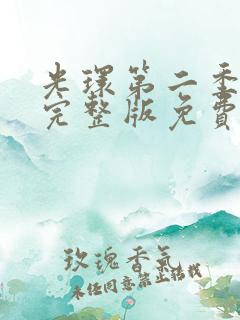 光環第二季
完整版免費
玫瑰香氣
未经同意禁止转载